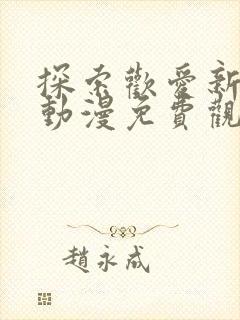 探索歡愛新
動漫免費觀
趙永成